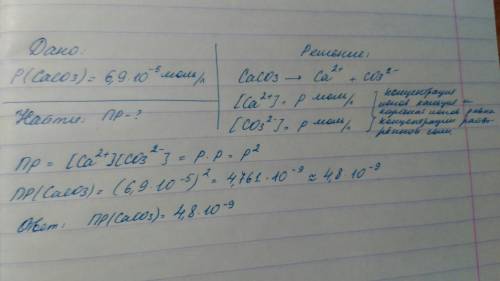 Дано:
P(CaCO3) = 6,9·10⁻⁵ моль/л
Найти: ПР = ?
Решение:
CaCO3 → Ca²⁺ + CO3²⁻
[Ca²⁺] = P моль/л
[CO3²⁻] = P моль/л
концентрация
ионов кальция =
карбонат ионов равна
концентрации раство-
ренной соли.
ПР = [Ca²⁺][CO3²⁻] = P·P = P²
ПР(CaCO3) = (6,9·10⁻⁵)² = 4,761·10⁻⁹ ≈ 4,8·10⁻⁹
Ответ: ПР(CaCO3) = 4,8·10⁻⁹